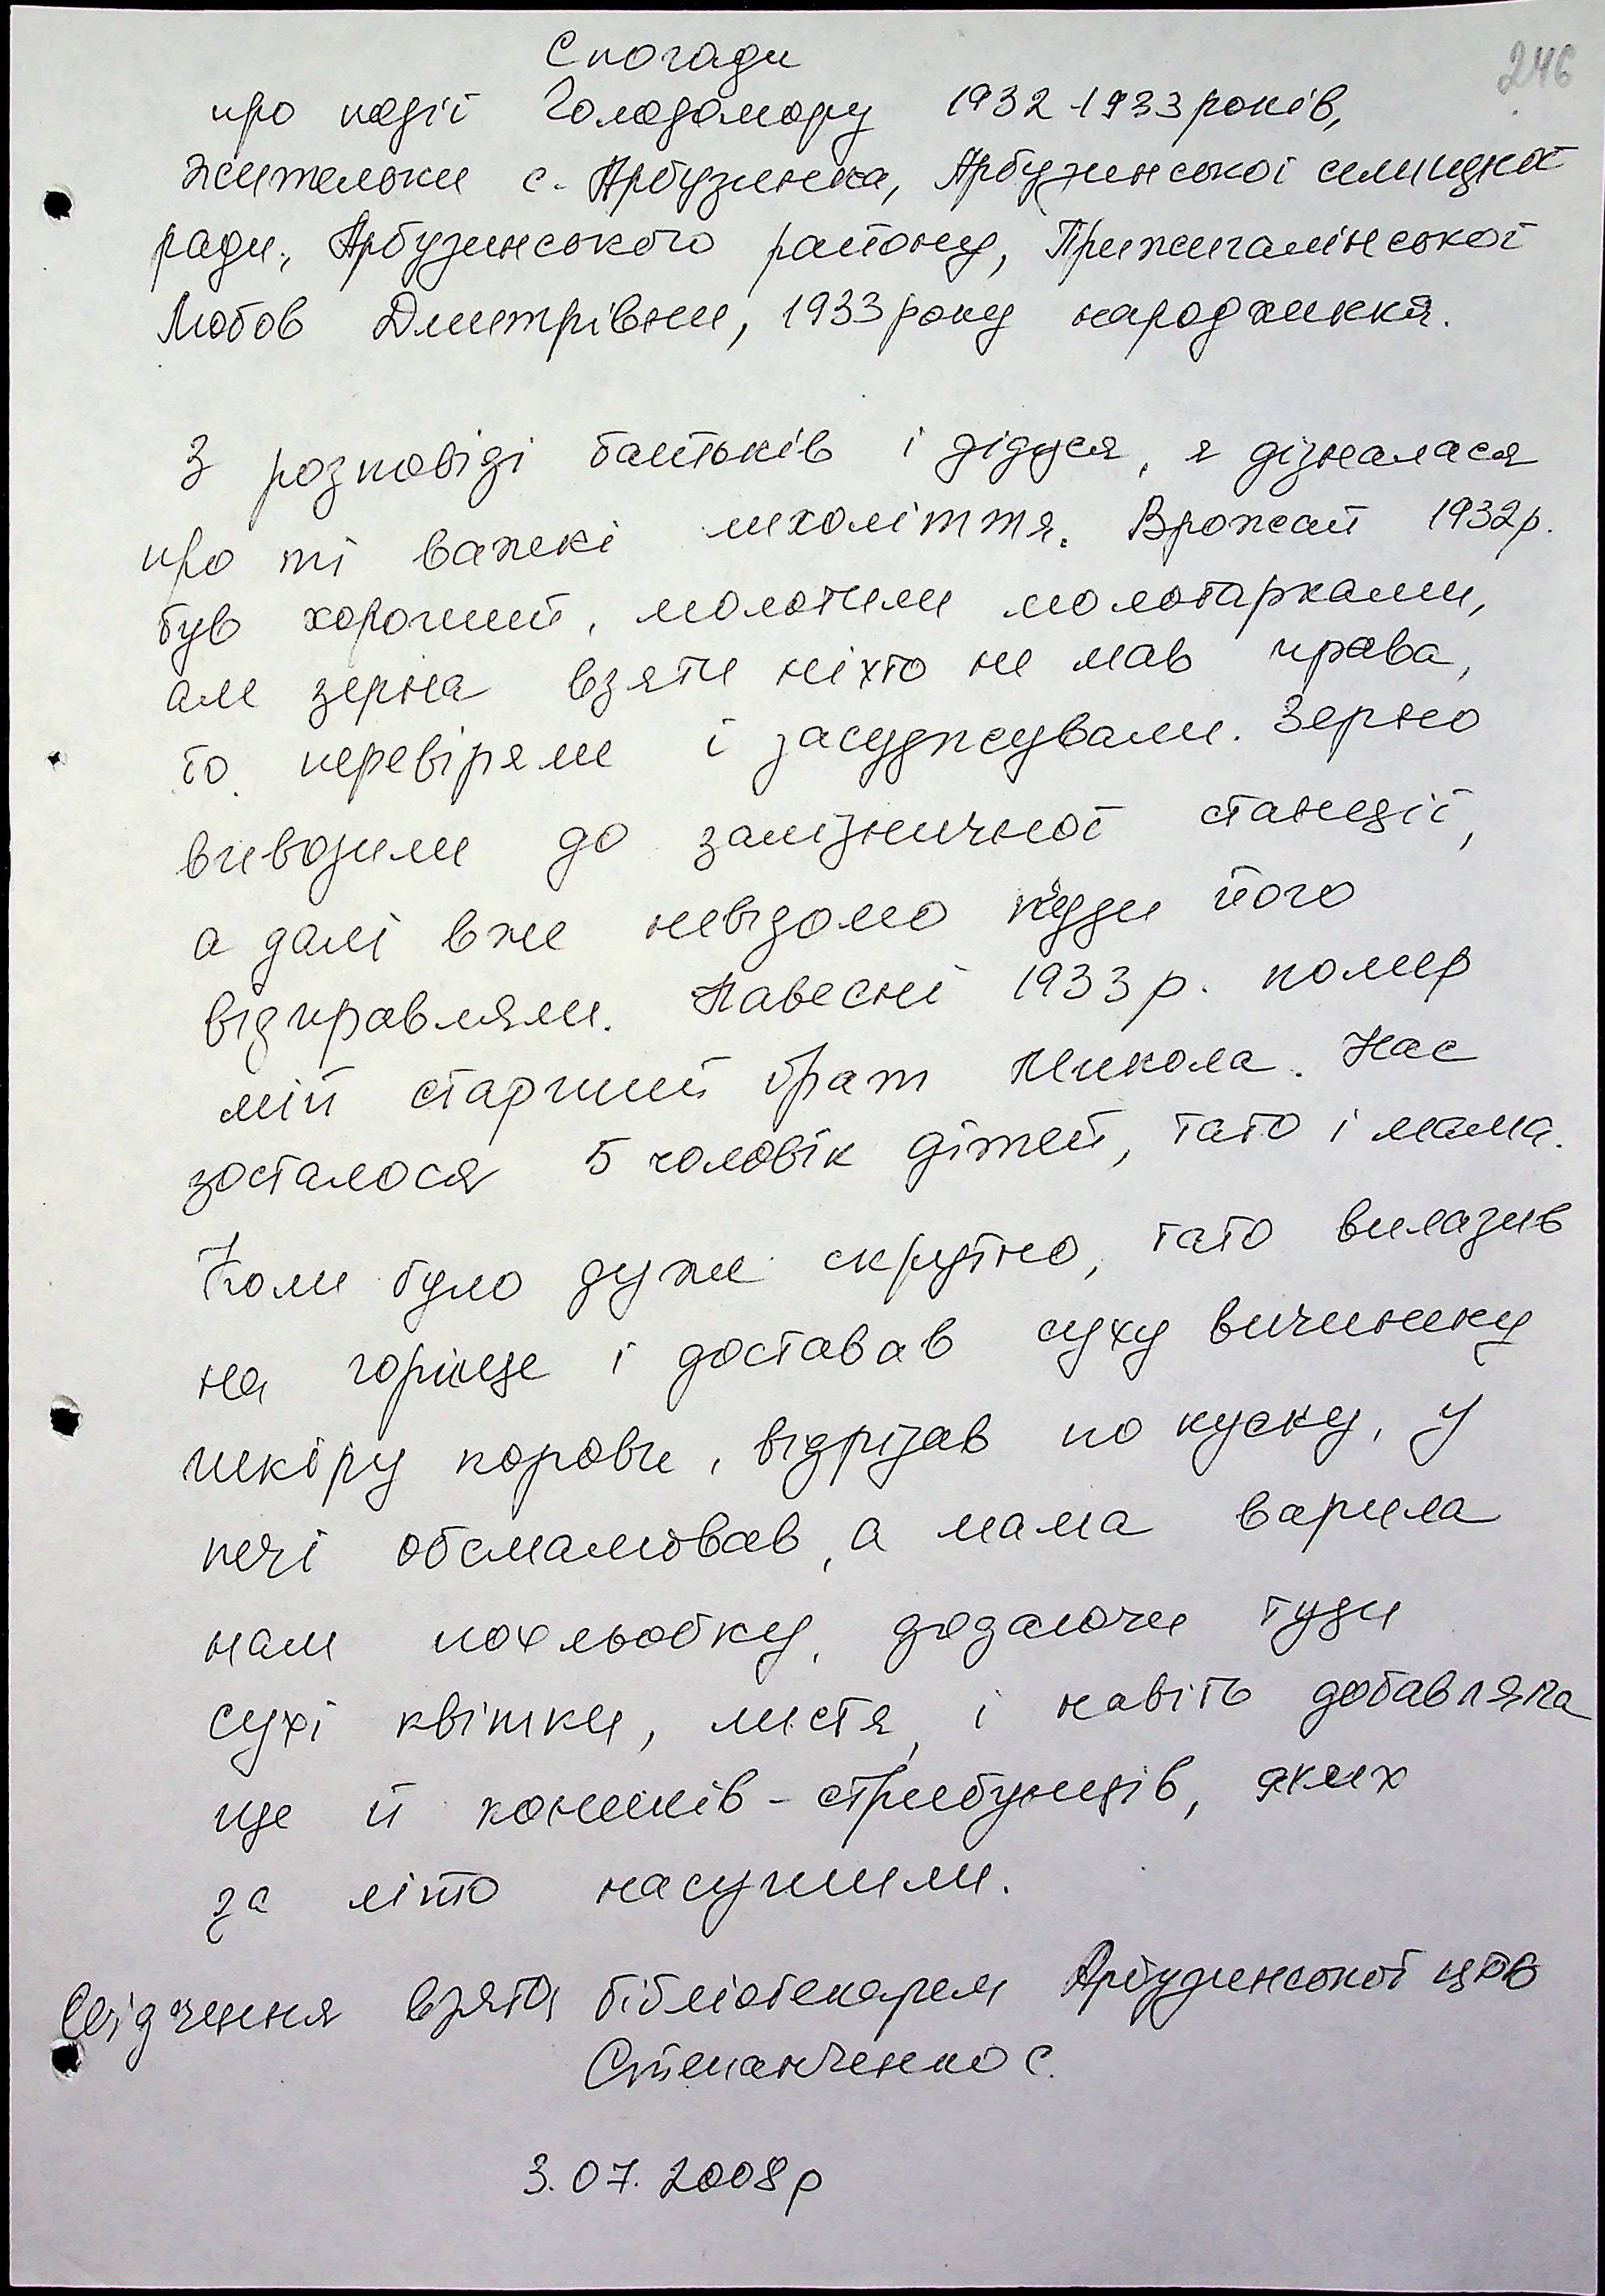 246
Спогади
про події Голодомору 1932-1933 років,
жительки с. Арбузинка, Арбузинської селищної
ради, Арбузинського району, Прижигалінської
Любов Дмитрівни, 1933 року народження.
З розповіді батьків і дідуся, я дізналася
про ті важкі лихоліття. Врожай 1932р.
був хороший, молотили молотарками,
але зерна взяти ніхто не мав права,
то перевіряли і засуджували. Зерно
вивозили до залізничної станції,
а далі вже невідомо куди його
відправляли. Навесні 1933 р. помер
мій старший брат Микола. Нас
зосталося 5 чоловік дітей, тато і мама.
Коли було дуже скрутно, тато вилазив
на горище і доставав суху вичинену
шкіру корови, відрізав по куску, у
печі обсмалював, а мама варила
нам похльобку, додаючи туди
сухі квітки, листя, і навіть добавляла
ще й коників-стрибунців, яких
за літо насушили.
Свідчення взято бібліотекарем Арбузинської ЦРБ
Степанченко С.
3.07.2008р